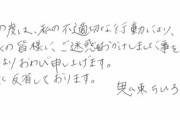 の度は、私の不適切な行動により、
くの皆様に、ご迷惑おかけしました事を
よりおわび申し上げます。
に反省しております。
東ちひろ